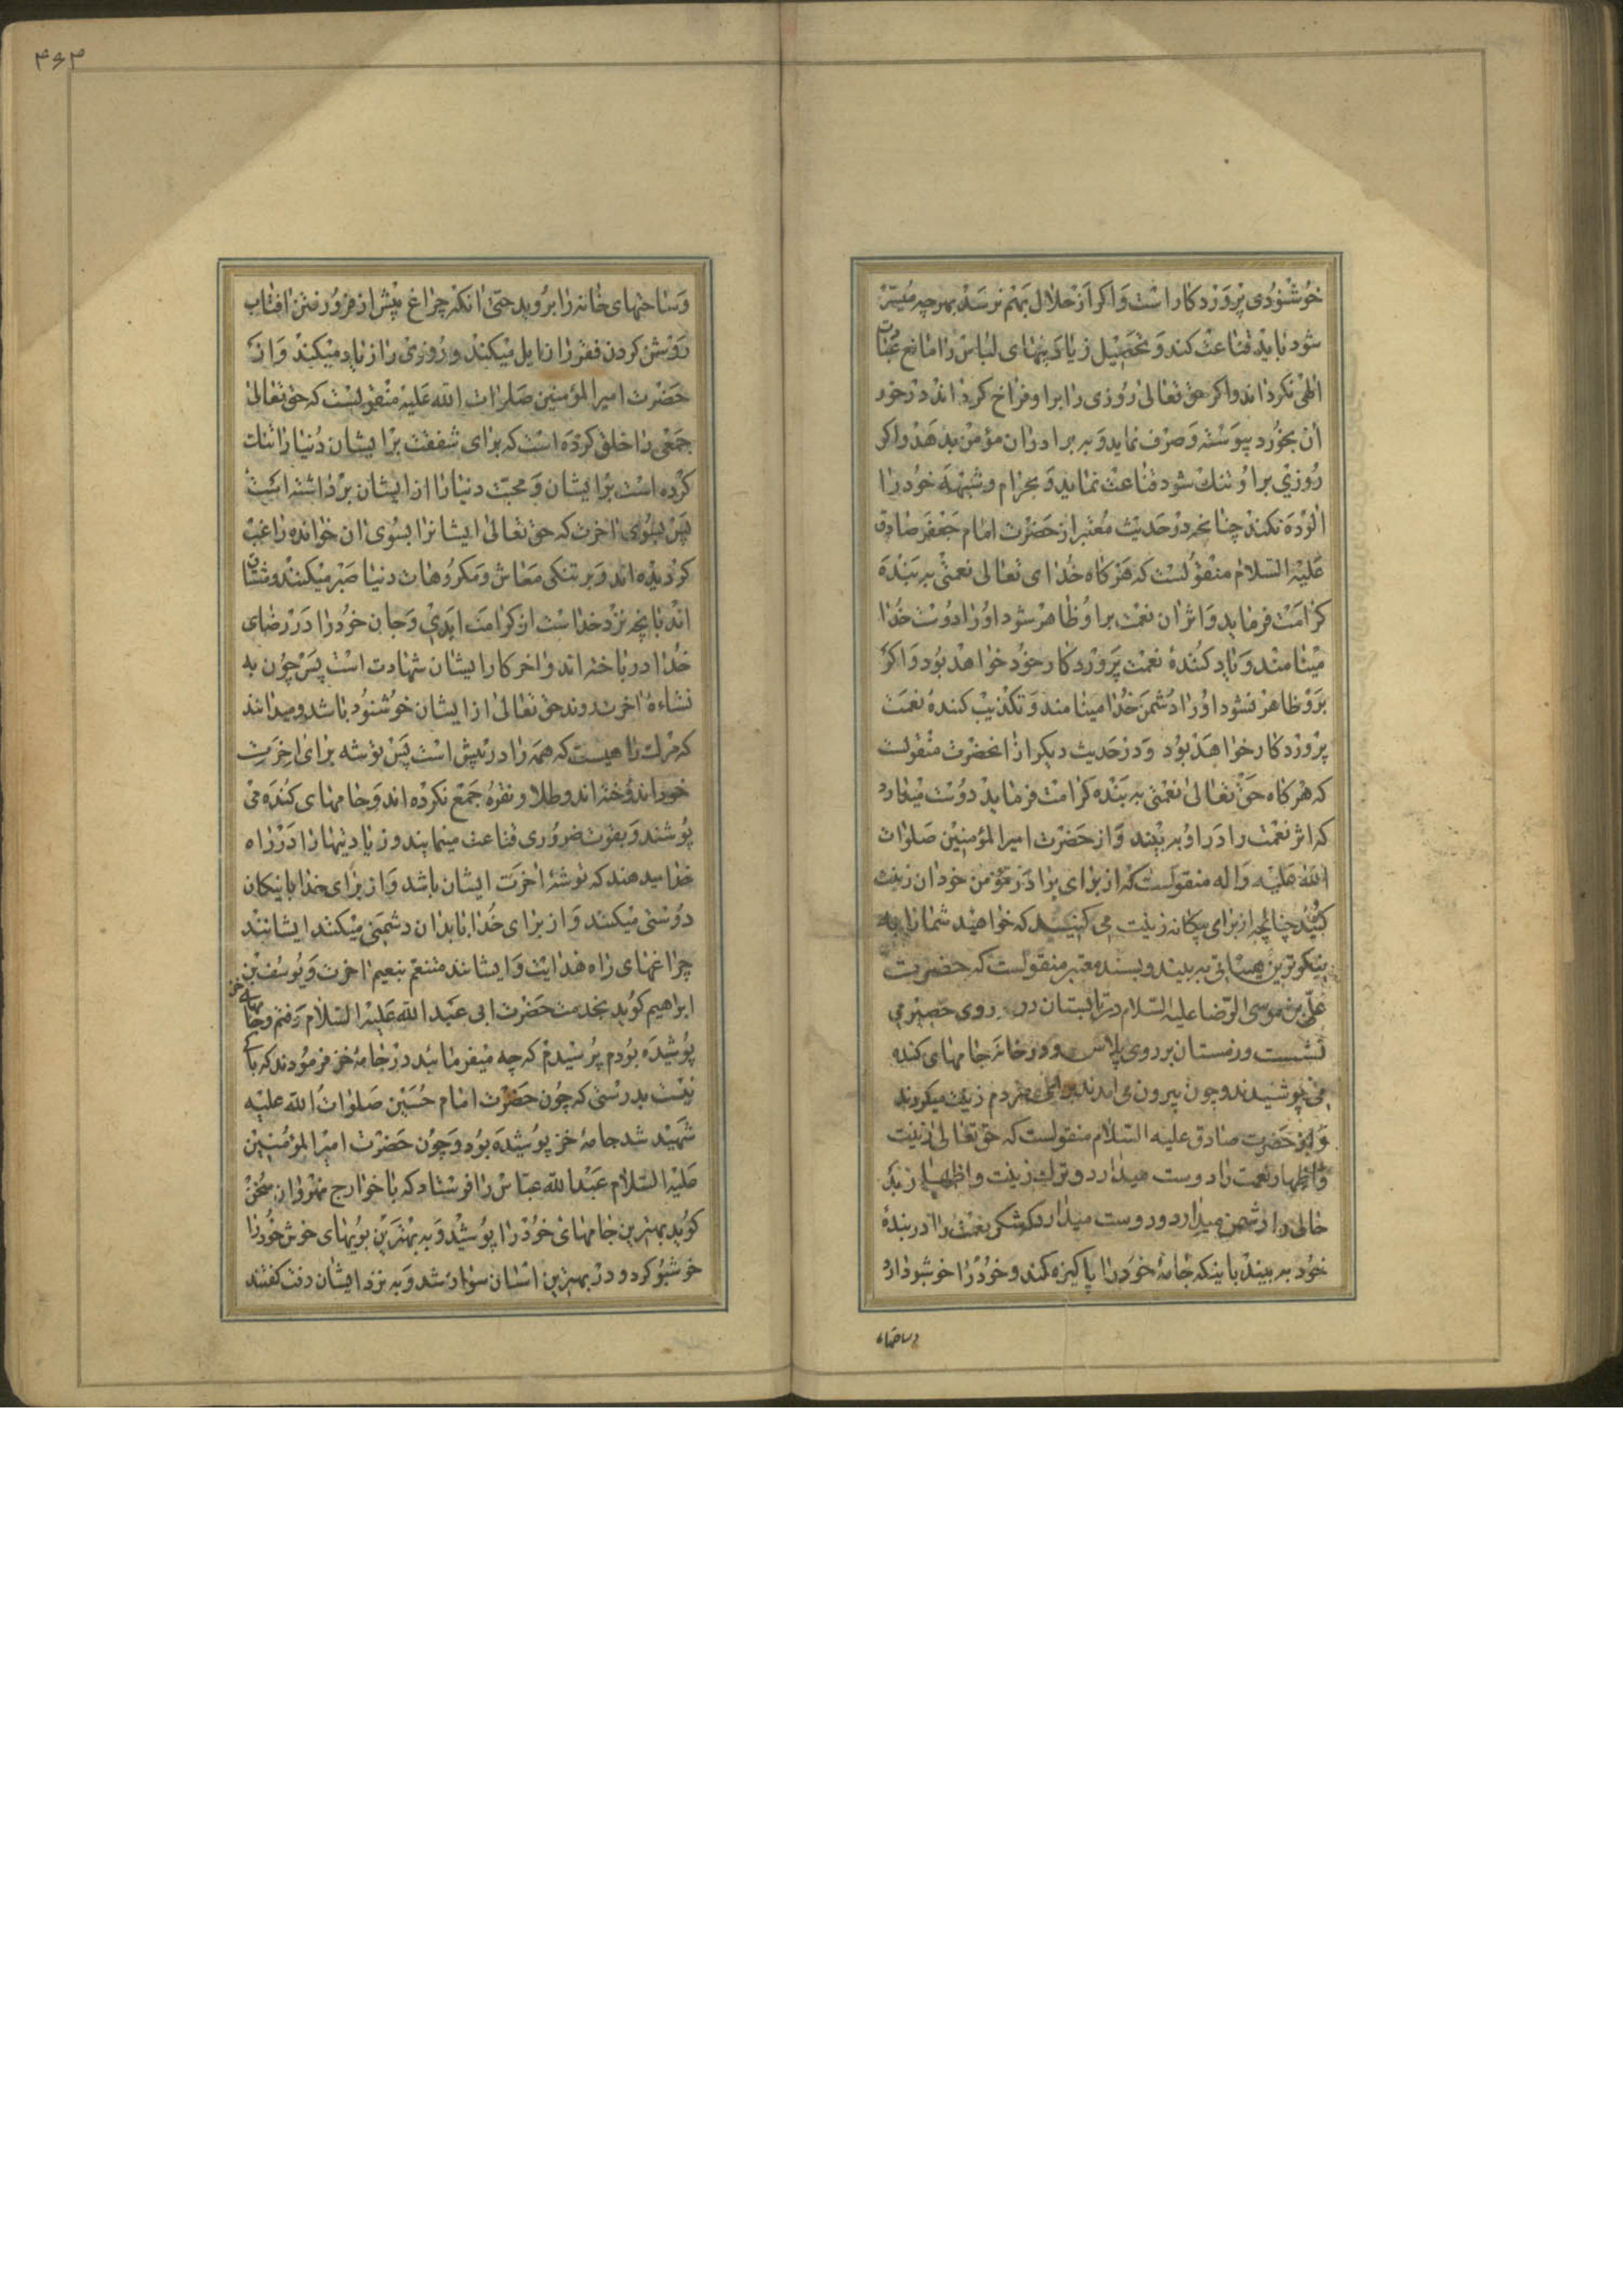 خوشنودی پروردکار است و اکر از حلال بهم نرسد بهرچه میسر
شود باید قناعت کند و تحصیل زیادتیهای لباس را مانع عبادت
الهی نکرداند و اکر حق تعالی روزی را بر او فراخ کرداند در خور
آن بخورد بپوشد و صرف نماید و به برادران مؤمن بدهد و اکر
روزی بر او تنك شود قناعت نماید و بحرام و شبهه خود را
الوده نکند چنانچه در حدیث معتبر از حضرت امام جعفر صادق
علیه السلام منقولست که هرکاه خدای تعالی نعمتی به بنده
کرامت فرماید و اثر ان نعمت بر او ظاهر شود او را دوست خدا
مینامند و یاد کننده نعمت پروردکار خود خواهد بود و اکر
بر او ظاهر نشود او را دشمن خدا مینامند و تکذیب کننده نعمت
پروردکار خواهد بود و در حدیث دیکر از انحضرت منقولست
که هرکاه حق تعالی نعمتی به بنده کرامت فرماید دوست میدارد
که اثر نعمت را در او به بیند و از حضرت امیر المؤمنین صلوات
الله علیه و اله منقولست که از برای برادر مؤمن خود ان زینت
کنید چنانچه از برای بیکانه زینت می کنید که خواهید شما را به
نیکوترین هیئاتی به بیند و بسند معتبر منقولست که حضرت
علی بن موسی الرضا علیه السلام در تابستان روی حصیر می
نشست و زمستان بر روی پلاس و در خانه جامهای کنده
می پوشیدند و چون بیرون می امدند برای مردم زینت میکردند
و از حضرت صادق علیه السلام منقولست که حق تعالی زینت
و اظهار نعمت را دوست میدارد و ترك زینت و اظهار
حالی را دشمن میدارد و دوست میدارد که شکر نعمت را در بندۀ
خود به بیند باینکه جامۀ خود را پاکیزه کند و خود را خوشبو دارد
و ساحتهای
۴۶۳
و ساحتهای خانه را بروید حتی انکه چراغ پیش از فرو رفتن افتاب
روشن کردن فقر را زایل میکند و روزی را زیاد میکند و از
حضرت امیر المؤمنین صلوات الله علیه منقولست که حق تعالی
جمعی را خلق کرده است که برای شفقت بر ایشان دنیا را تنك
کرده است بر ایشان و محبت دنیا را از ایشان برداشته است
پس بسوی اخرت که حق تعالی ایشانرا بسوی ان خوانده راغب
کردیده اند و بر تنکی معاش و مکروهات دنیا صبر میکنند و مشتاق
اند بانچه نزد خداست از کرامت ابدی و جان خود را در رضای
خدا درباخته اند و اخر کار ایشان شهادت است پس چون به
نشاءۀ اخرت روند حق تعالی از ایشان خوشنود باشد و میدانند
که مرك راهیست که همه را در پیش است پس توشه برای اخرت
خود اندوخته اند و طلا و نقره جمع نکرده اند و جامهای کنده می
پوشند و بقوت ضروری قناعت مینمایند و زیادتیها را در راه
خدا میدهند که توشۀ اخرت ایشان باشد و از برای خدا با نیکان
دوستی میکنند و از برای خدا با بدان دشمنی میکنند ایشانند
چراغهای راه هدایت و ایشانند متنعم بنعیم اخرت و یوسف بن
ابراهیم کوید بخدمت حضرت ابی عبد الله علیه السلام رفتم و جامهای خز
پوشیده بودم پرسیدم که چه میفرمائید در جامۀ خز فرمودند که باکی
نیست بدرستی که چون حضرت امام حسین صلوات الله علیه
شهید شد جامۀ خز پوشیده بود و چون حضرت امیر المؤمنین
علیه السلام عبد الله عباس را فرستاد که با خوارج نهروان سخن
کوید بهترین جامهای خود را پوشید و به بهترین بویهای خوش خود را
خوشبو کرد و در بهترین اسبان سوار شد و به نزد ایشان رفت کفتند